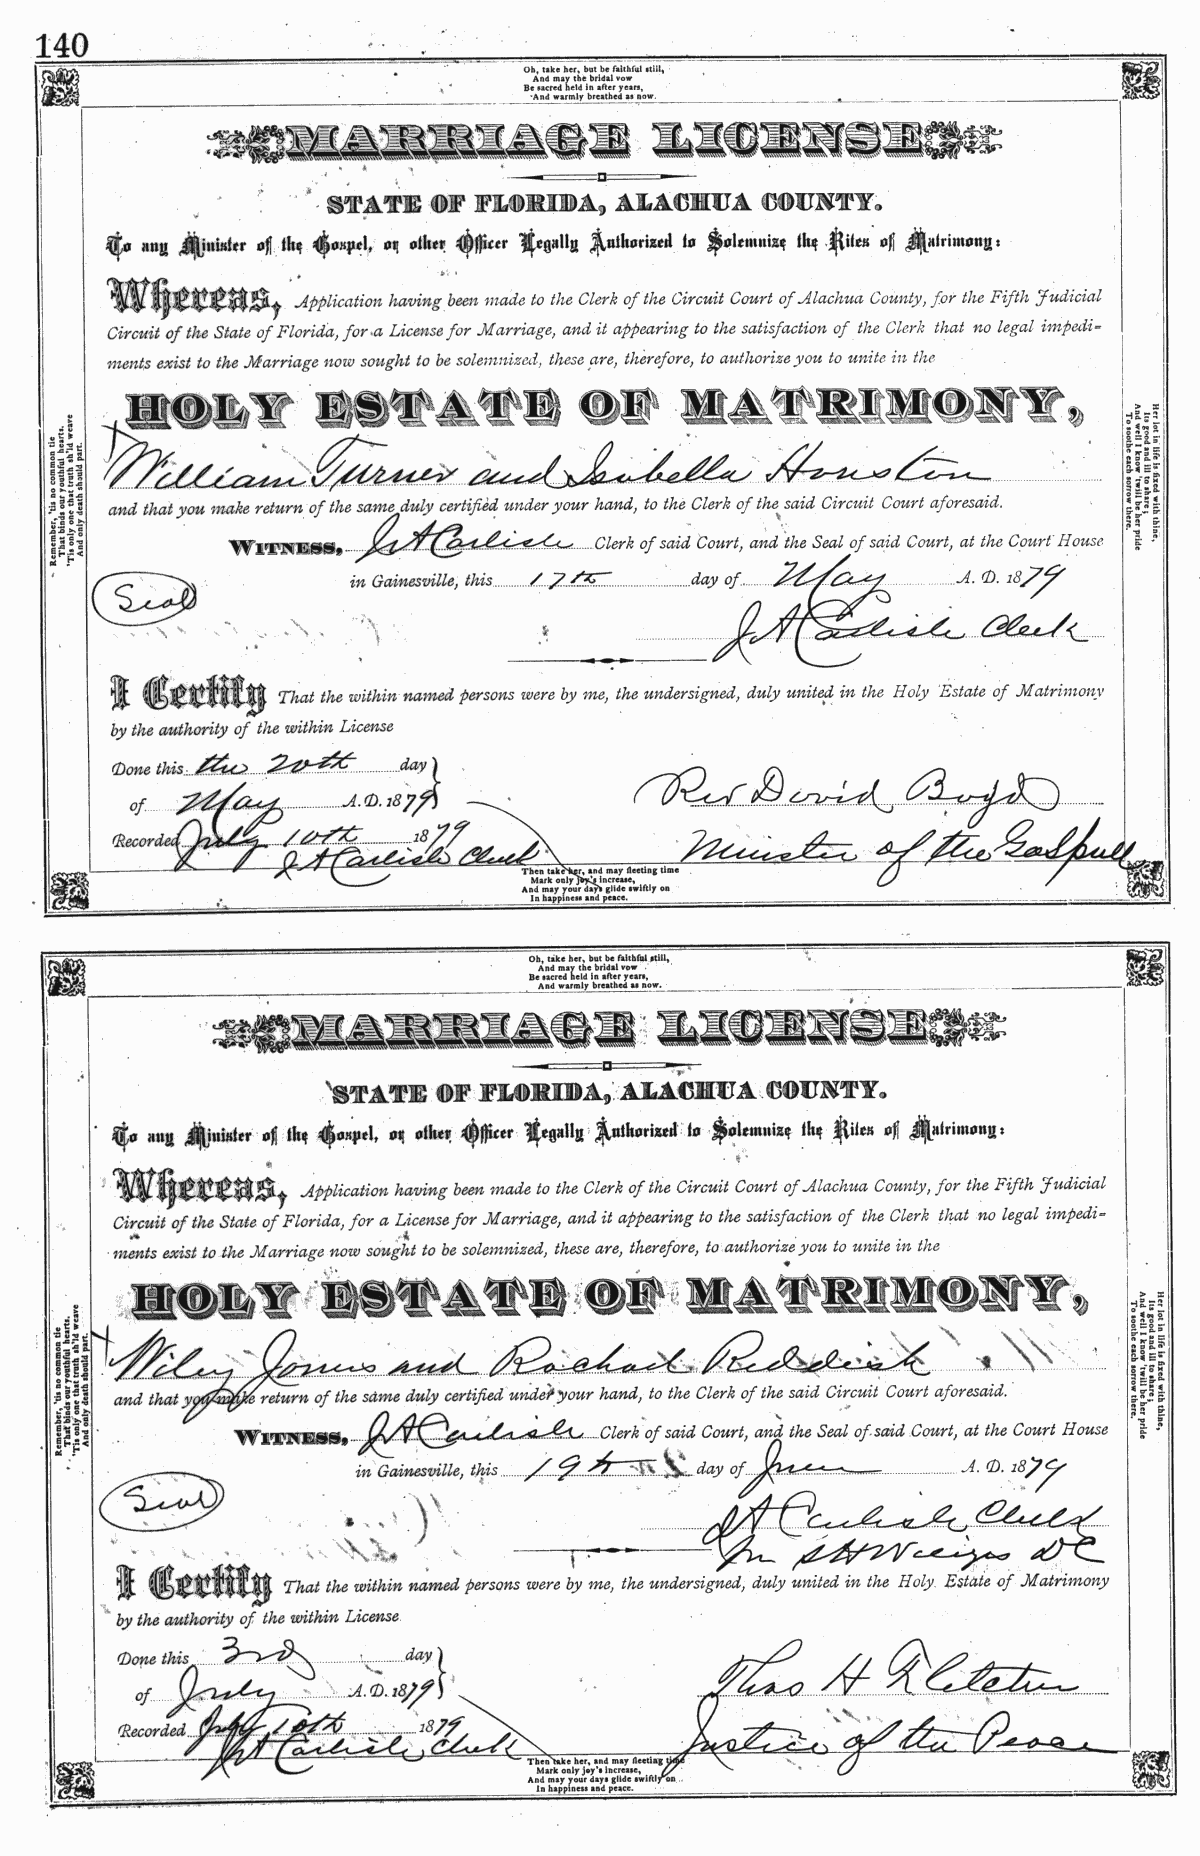 140
Oh, take her, but be faithful still,
And may the bridal vow
Be sacred held in after years,
And warmly breathed as now.
MARRIAGE LICENSE
STATE OF FLORIDA, ALACHUA COUNTY.
To any Minister of the Gospel, or other Officer Legally Authorized to Solemnize the Rites of Matrimony:
Whereas, Application having been made to the Clerk of the Circuit Court of Alachua County, for the Fifth Judicial
Circuit of the State of Florida, for a License for Marriage, and it appearing to the satisfaction of the Clerk that no legal impedi-
ments exist to the Marriage now sought to be solemnized, these are, therefore, to authorize you to unite in the
HOLY ESTATE OF MATRIMONY,
William Turner and Isabella Houston
and that you make return of the same duly certified under your hand, to the Clerk of the said Circuit Court aforesaid.
WITNESS, J A Carlisle Clerk of said Court, and the Seal of said Court, at the Court House
in Gainesville, this 17th day of May A. D. 1879
Seal
J A Carlisle Clerk
I Certify That the within named persons were by me, the undersigned, duly united in the Holy Estate of Matrimony
by the authority of the within License
Done this the 20th day
of May A. D. 1879
Rev David Boyd
Recorded July 10th 1879
Minister of the Gospull
J A Carlisle Clerk
Remember, 'tis no common tie
That binds our youthful hearts.
'Tis only one that truth sh'ld weave
And only death should part.
Her lot in life is fixed with thine,
Its good and ill to share;
And well I know 'twill be her pride
To soothe each sorrow there.
Then take her, and may fleeting time
Mark only joy's increase,
And may your days glide swiftly on
In happiness and peace.
Oh, take her, but be faithful still,
And may the bridal vow
Be sacred held in after years,
And warmly breathed as now.
MARRIAGE LICENSE
STATE OF FLORIDA, ALACHUA COUNTY.
To any Minister of the Gospel, or other Officer Legally Authorized to Solemnize the Rites of Matrimony:
Whereas, Application having been made to the Clerk of the Circuit Court of Alachua County, for the Fifth Judicial
Circuit of the State of Florida, for a License for Marriage, and it appearing to the satisfaction of the Clerk that no legal impedi-
ments exist to the Marriage now sought to be solemnized, these are, therefore, to authorize you to unite in the
HOLY ESTATE OF MATRIMONY,
Wiley Jones and Rachael Reddish
and that you make return of the same duly certified under your hand, to the Clerk of the said Circuit Court aforesaid.
WITNESS, J A Carlisle Clerk of said Court, and the Seal of said Court, at the Court House
in Gainesville, this 19th day of June A. D. 1879
Seal
J A Carlisle Clerk
S H DC
I Certify That the within named persons were by me, the undersigned, duly united in the Holy Estate of Matrimony
by the authority of the within License.
Done this 3rd day
of July A. D. 1879
Thos H Fletcher
Recorded July 10th 1879
Justice of the Peace
J A Carlisle Clerk
Remember, 'tis no common tie
That binds our youthful hearts.
'Tis only one that truth sh'ld weave
And only death should part.
Her lot in life is fixed with thine,
Its good and ill to share;
And well I know 'twill be her pride
To soothe each sorrow there.
Then take her, and may fleeting time
Mark only joy's increase,
And may your days glide swiftly on
In happiness and peace.